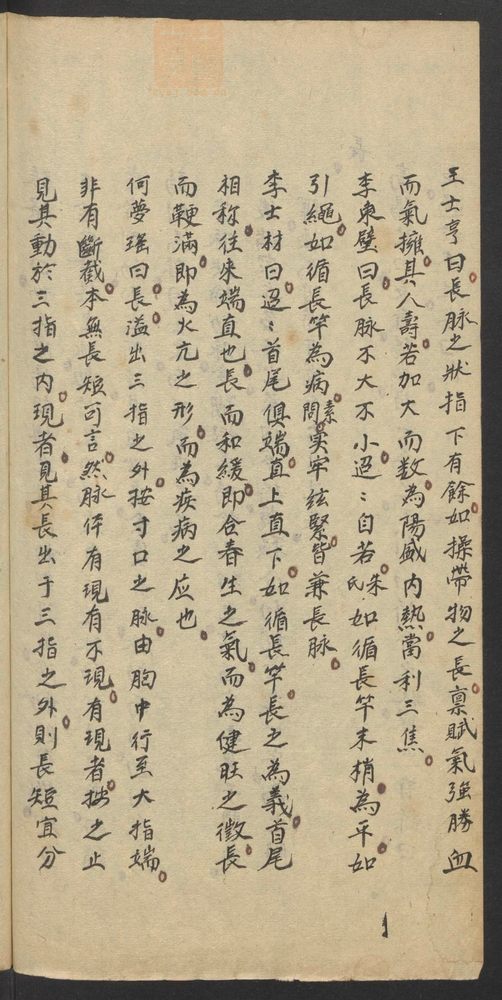 王士亨曰長脉之狀指下有餘如操帶物之長禀賦氣強勝血
而氣擁其人壽若加大而数為陽盛内熱當利三焦
李東璧曰長脉不大不小迢〻自若朱氏如循長竿末梢為平如
引繩如循長竿為病素問实牢弦緊皆兼長脉
李士材曰迢〻首尾俱端直上直下如循長竿長之為義首尾
相称往来端直也長而和緩即合春生之氣而為健旺之徵長
而鞕滿即為火亢之形而為疾病之应也
何夢瑤曰長溢出三指之外按寸口之脉由胸中行至大指端
非有斷截本無長短可言然脉体有現有不現有現者按之止
見其動於三指之内現者見其長出于三指之外則長短宜分